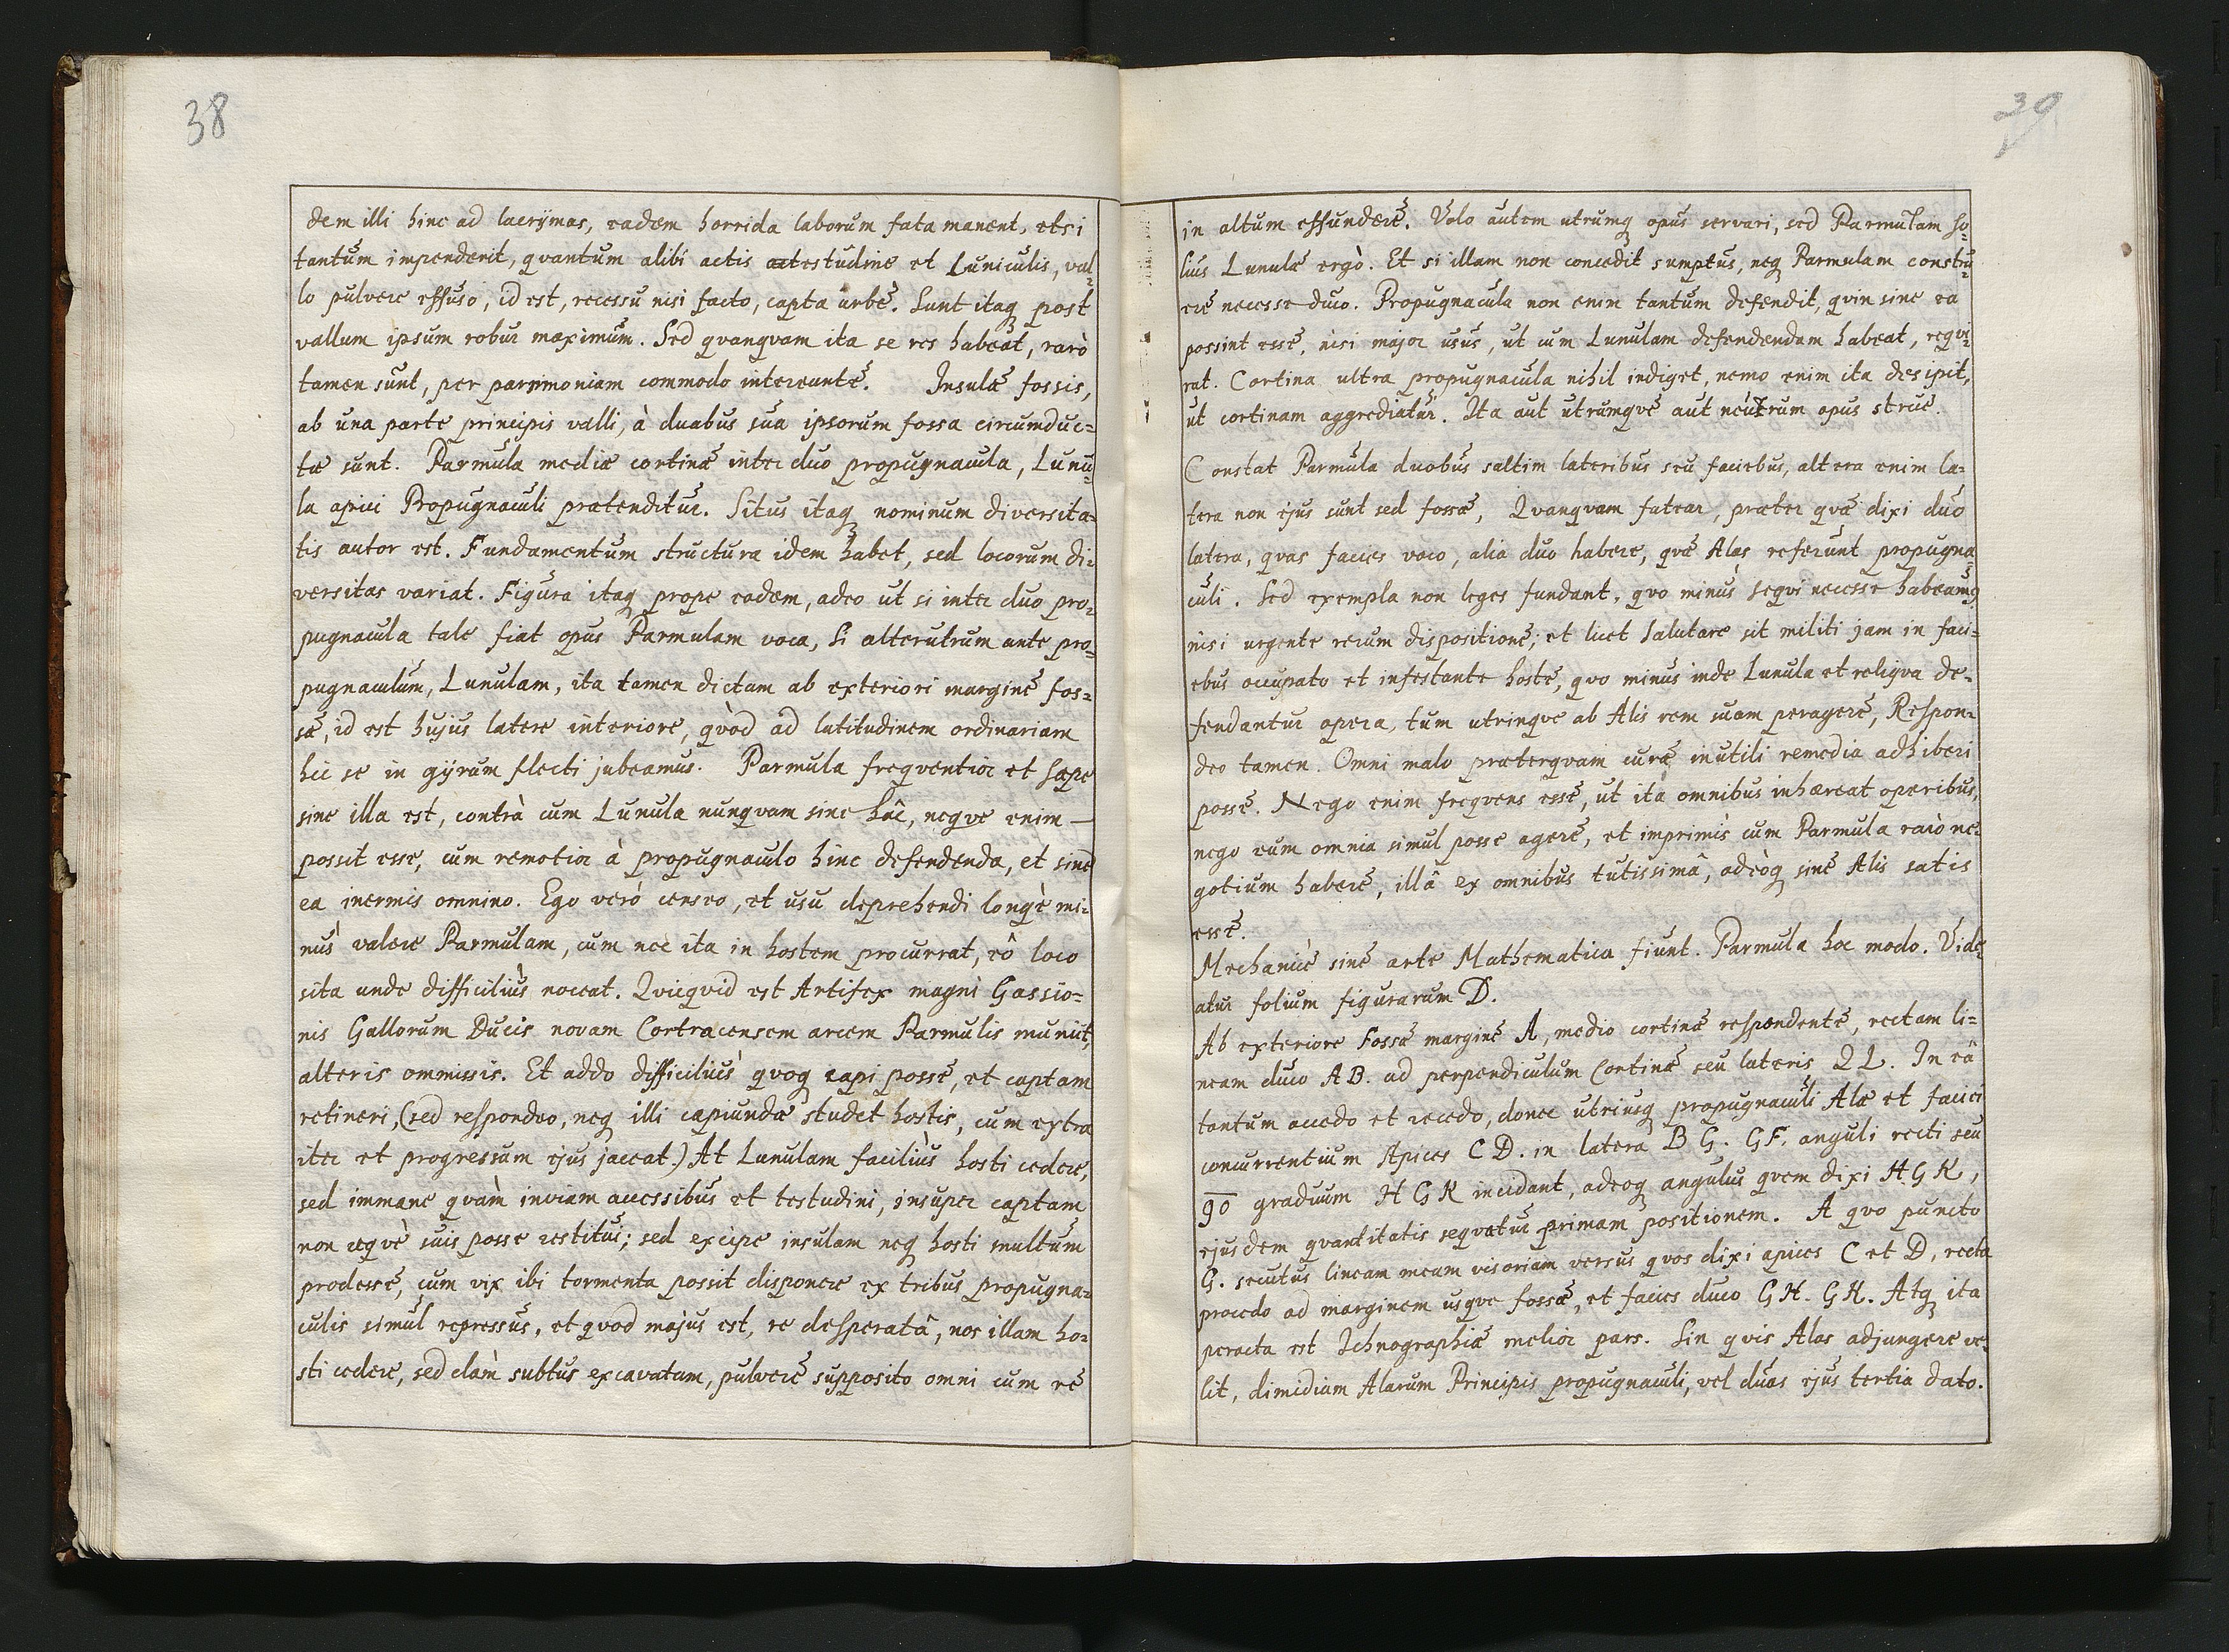 38
dem illi hinc ad lacrÿmas, eadem horrida laborum fata manent, etsi
tantum impenderit, qvantum alibi actis testudine et Luniculis, val=
lo pulvere effuso, id est, recessu nisi facto, capta urbe. Sunt itaq post
vallum ipsum robur maximum. Sed qvanqvam ita se res habeat, rarò
tamen sunt, per parsimoniam commodo intereunte. Insulæ fossis,
ab una parte principis valli, à duabus sua ipsorum fossa circumduc=
tæ sunt. Parmula mediæ cortinæ inter duo propugnacula, Lunu=
la apici Propugnaculi prætenditur. Situs itaq nominum diversita=
tis autor est. Fundamentum structura idem habet, sed locorum di=
versitas variat. Figura itaq prope eadem, adeo ut si inter duo pro=
pugnacula tale fiat opus Parmulam voca, Si alterutrum ante pro=
pugnaculum, Lunulam, ita tamen dictam ab exteriori margine fos=
sæ, id est hujus latere interiore, qvòd ad latitudinem ordinariam
hic se in gÿrum flecti jubeamus. Parmula freqventior et sæpe
sine illa est, contrà cum Lunula nunqvam sine hâc, neqve enim —
possit esse, cum remotior à propugnaculo hinc defendenda, et sine
ea inermis omnino. Ego verò censeo, et usu deprehendi longè mi=
nùs valere Parmulam, cum nec ita in hostem procurrat, eô loco
sita unde difficiliùs noceat. Qvicqvid est Artifex magni Gassio=
nis Gallorum Ducis novam Cortracensem arcem Parmulis muniit,
alteris ommissis. Et addo difficiliùs qvoq capi posse, et captam
retineri, (sed respondeo, neq illi capiundæ studet hostis, cum extra
iter et progressum ejus jaceat.) At Lunulam faciliùs hosti cedere,
sed immane qvàm inviam accessibus et testudini, insuper captam
non æqvè suis posse restitui; sed excipe insulam neq hosti multum
prodesse, cum vix ibi tormenta possit disponere ex tribus propugna=
culis simul repressus, et qvod majus est, re desperatâ, nos illam ho=
sti cedere, sed clàm subtus excavatam, pulvere supposito omni cum re
39
in altum effundere. Volo autem utrumq opus servari, sed Parmulam so=
lius Lunulæ ergò. Et si illam non concedit sumptus, neq Parmulam constru=
ere necesse duco. Propugnacula non enim tantum defendit, qvin sine ea
possint esse, nisi major usus, ut cum Lunulam defendendam habeat, reqvi=
rat. Cortina ultra propugnacula nihil indiget, nemo enim ita desipit,
ut cortinam aggrediatur. Ita aut utrumqve aut neutrum opus strue.
Constat Parmula duobus saltim lateribus seu faciebus, altera enim la=
tera non ejus sunt sed fossæ, Qvanqvam fatear, præter qvæ dixi duo
latera, qvas facies voco, alia duo habere, qvæ Alas referunt propugna=
culi. Sed exempla non leges fundant, qvo minùs seqvi necesse habeamus
nisi urgente rerum dispositione; et licet salutare sit militi jam in faci=
ebus occupato et infestante hoste, qvo minus inde Lunula et reliqva de=
fendantur opera, tum utrinqve ab Alis rem suam peragere, Respon=
deo tamen. Omni malo præterqvam curæ inutili remedia adhiberi
posse. Nego enim freqvens esse, ut ita omnibus inhæreat operibus,
nego eum omnia simul posse agere, et imprimis cum Parmula rarò ne=
gotium habere, illâ ex omnibus tutissimâ, adeòq sine Alis satis
esse.
Mechanicè sine arte Mathematica fiunt. Parmula hoc modo. Vide=
atur folium figurarum D.
Ab exteriore Fossæ margine A, medio cortinæ respondente, rectam li=
neam duco AB. ad perpendiculum Cortinæ seu lateris QL. In eâ
tantum accedo et recedo, donec utriusq propugnaculi Alæ et faciei
concurrentium Apices C D. in latera B G. G F. anguli recti seu
90 graduum H G K incidant, adeoq angulus qvem dixi H G K,
ejusdem qvantitatis seqvatur primam positionem. A qvo puncto
G. secutus lineam meam visoriam versus qvos dixi apices C et D, recta
procedo ad marginem usqve fossæ, et facies duco G H. G K. Atq ita
peracta est Ichnographiæ melior pars. Sin qvis Alas adjungere ve=
lit, dimidiam Alarum Principis propugnaculi, vel duas ejus tertia dato.